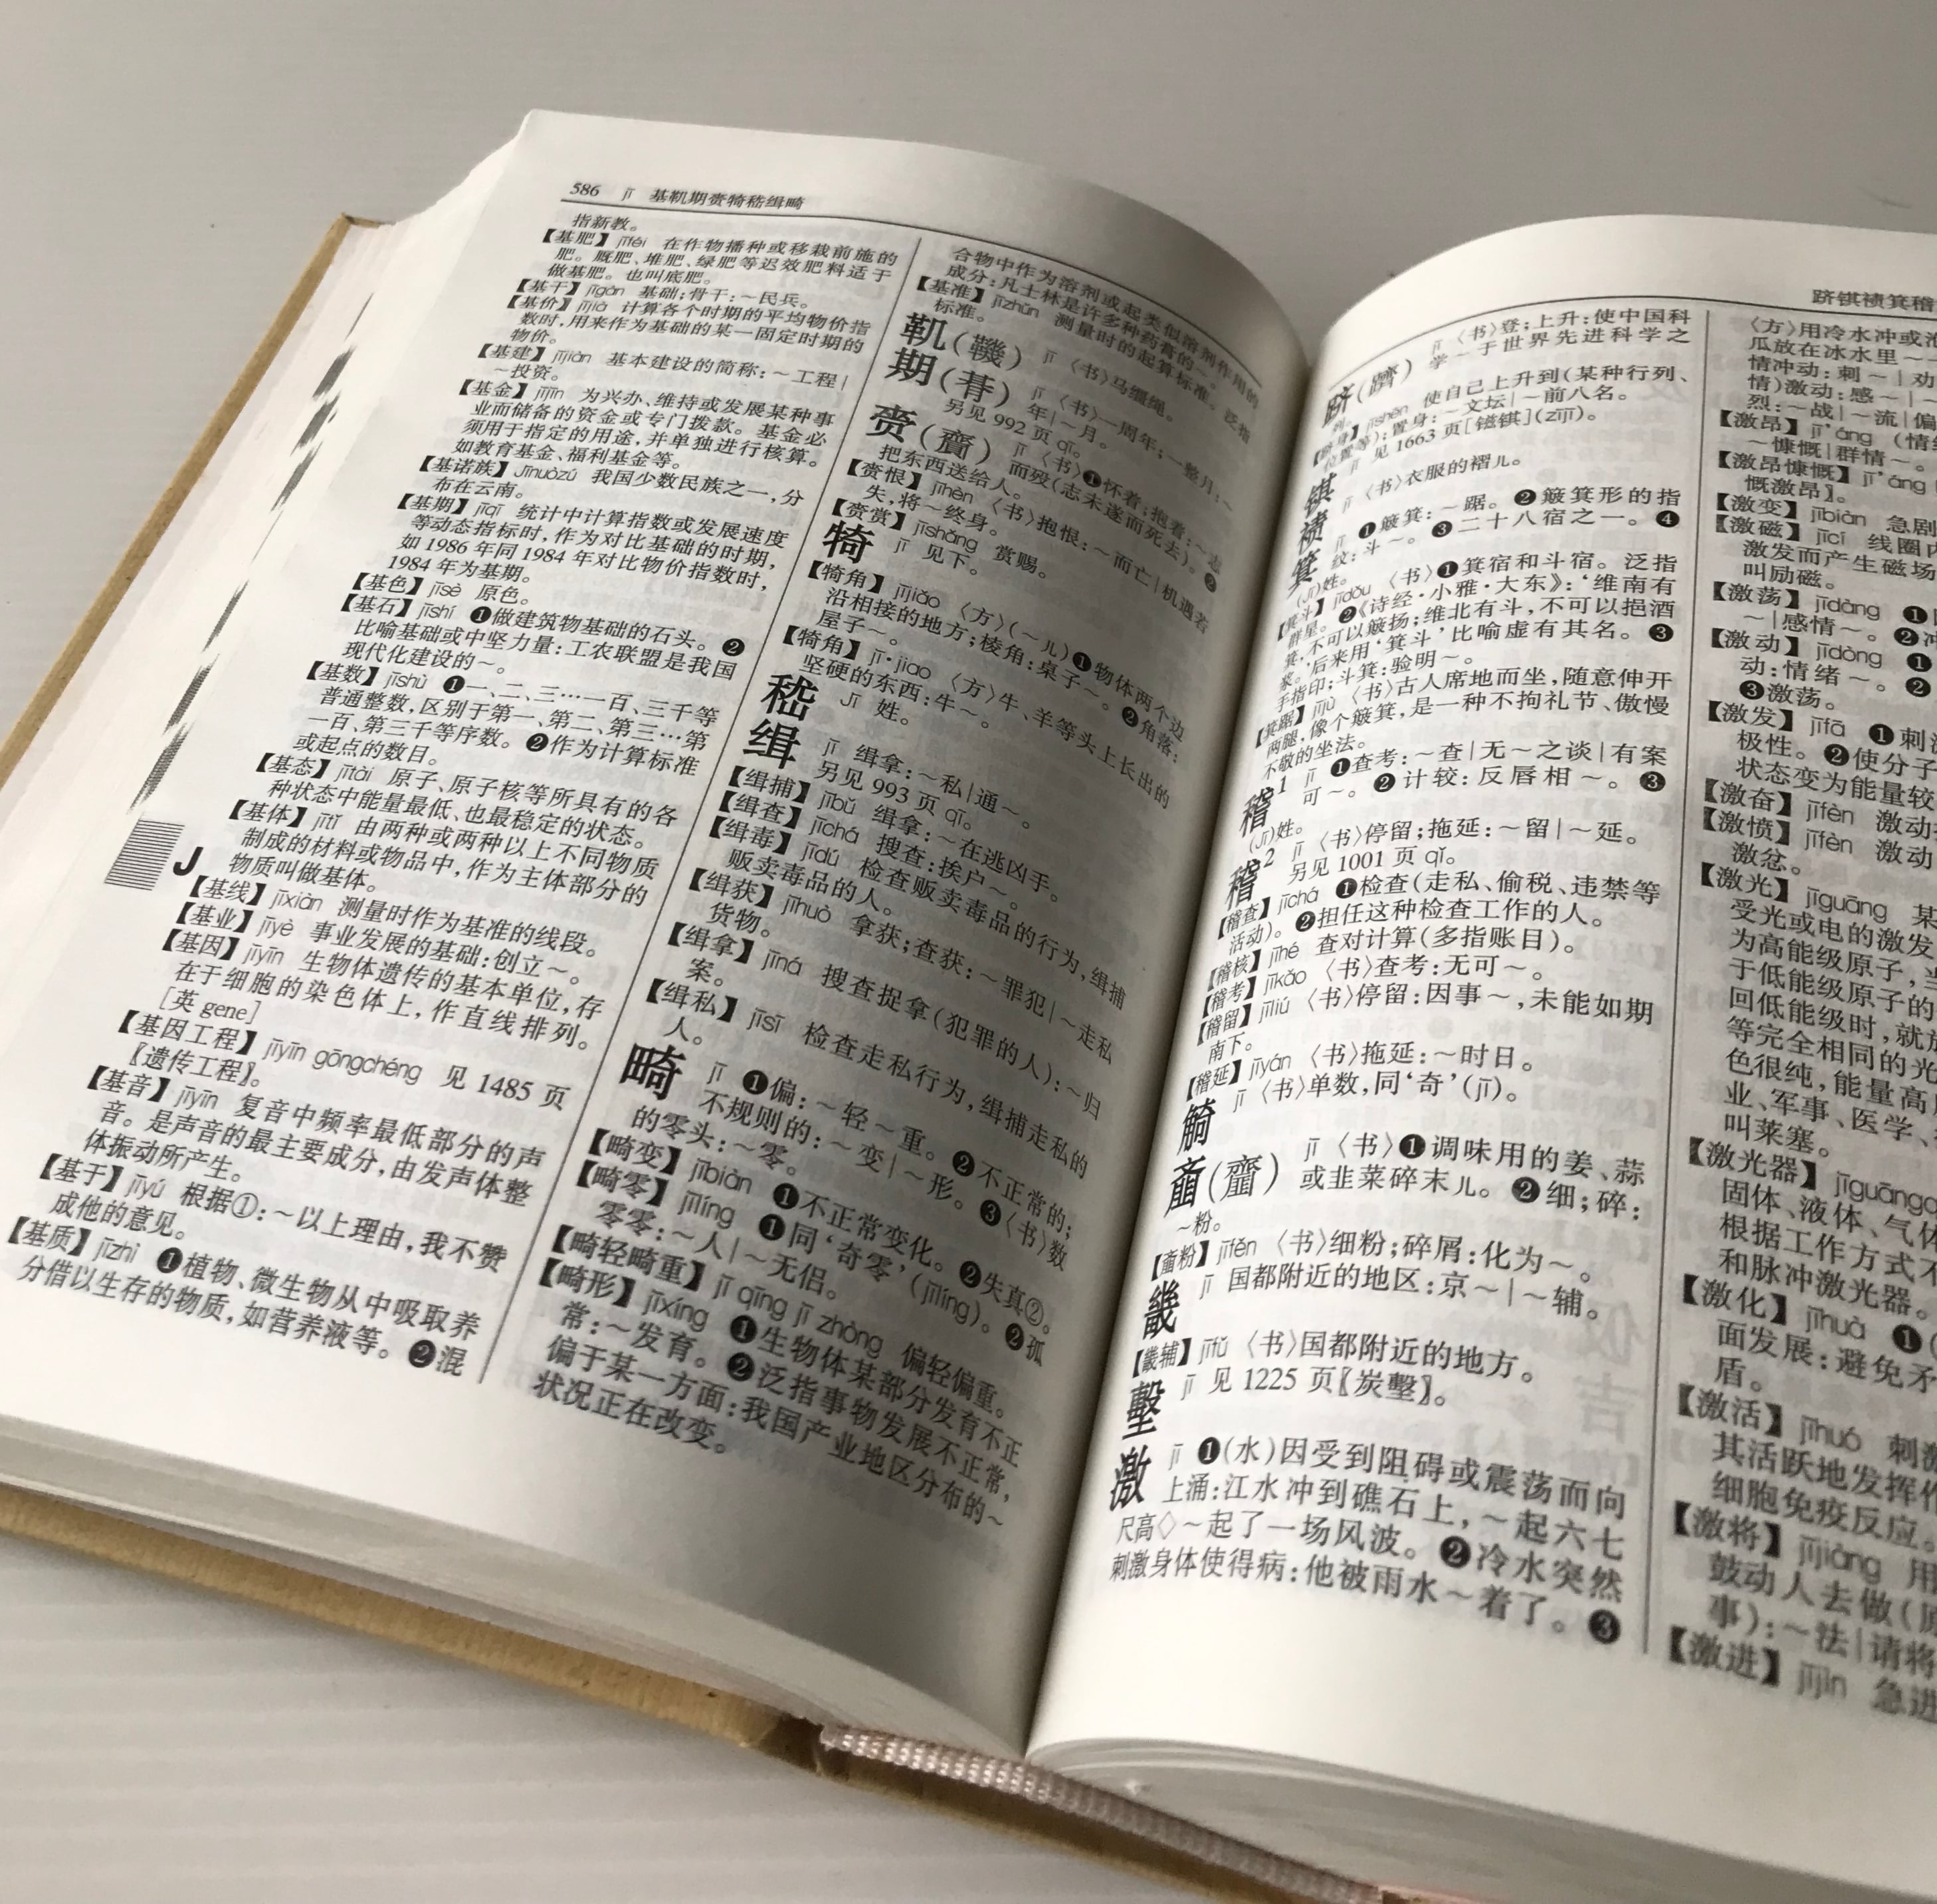 586 jī 基靰期赍犄嵇缉畸
指新教。
【基肥】 jīféi 在作物播种或移栽前施的
肥。厩肥、堆肥、绿肥等迟效肥料适于
做基肥。也叫底肥。
【基干】 jīgàn 基础;骨干:~民兵。
【基价】 jījià 计算各个时期的平均物价指
数时,用来作为基础的某一固定时期的
物价。
【基建】 jījiàn 基本建设的简称:~工程|
~投资。
【基金】 jījīn 为兴办、维持或发展某种事
业而储备的资金或专门拨款。基金必
须用于指定的用途,并单独进行核算。
如教育基金、福利基金等。
【基诺族】 Jīnuòzú 我国少数民族之一,分
布在云南。
【基期】 jīqī 统计中计算指数或发展速度
等动态指标时,作为对比基础的时期,
如 1986 年同 1984 年对比物价指数时,
1984 年为基期。
【基色】 jīsè 原色。
【基石】 jīshí ❶做建筑物基础的石头。❷
比喻基础或中坚力量:工农联盟是我国
现代化建设的~。
【基数】 jīshù ❶一、二、三…一百、三千等
普通整数,区别于第一、第二、第三…第
一百、第三千等序数。❷作为计算标准
或起点的数目。
【基态】 jītài 原子、原子核等所具有的各
种状态中能量最低、也最稳定的状态。
【基体】 jītǐ 由两种或两种以上不同物质
制成的材料或物品中,作为主体部分的
物质叫做基体。
J
【基线】 jīxiàn 测量时作为基准的线段。
【基业】 jīyè 事业发展的基础:创立~。
【基因】 jīyīn 生物体遗传的基本单位,存
在于细胞的染色体上,作直线排列。
[英 gene]
【基因工程】 jīyīn gōngchéng 见 1485 页
〖遗传工程〗。
【基音】 jīyīn 复音中频率最低部分的声
音。是声音的最主要成分,由发声体整
体振动所产生。
【基于】 jīyú 根据①:~以上理由,我不赞
成他的意见。
【基质】 jīzhì ❶植物、微生物从中吸取养
分借以生存的物质,如营养液等。❷混
合物中作为溶剂或起类似溶剂作用的
成分:凡士林是许多种药膏的~。
【基准】 jīzhǔn 测量时的起算标准。泛指
标准。
jī 〈书〉马缰绳。
期(朞) jī 〈书〉一周年;一整月:~
年|~月。
另见 992 页 qī。
赍(齎) jī 〈书〉❶怀着;抱着:~志
而殁(志未遂而死去)。❷
把东西送给人。
【赍恨】 jīhèn 〈书〉抱恨:~而亡|机遇若
失,将~终身。
【赍赏】 jīshǎng 赏赐。
犄 jī 见下。
【犄角】 jījiǎo 〈方〉(~儿)❶物体两个边
沿相接的地方;棱角:桌子~。❷角落:
屋子~。
【犄角】 jī·jiao 〈方〉牛、羊等头上长出的
坚硬的东西:牛~。
嵇 Jī 姓。
缉 jī 缉拿:~私|通~。
另见 993 页 qī。
【缉捕】 jībǔ 缉拿:~在逃凶手。
【缉查】 jīchá 搜查:挨户~。
【缉毒】 jīdú 检查贩卖毒品的行为,缉捕
贩卖毒品的人。
【缉获】 jīhuò 拿获;查获:~罪犯|~走私
货物。
【缉拿】 jīná 搜查捉拿(犯罪的人):~归
案。
【缉私】 jīsī 检查走私行为,缉捕走私的
人。
畸 jī ❶偏:~轻~重。❷不正常的;
不规则的:~变|~形。❸〈书〉数
的零头:~零。
【畸变】 jībiàn ❶不正常变化。❷失真②。
【畸零】 jīlíng ❶同‘奇零’(jīlíng)。❷孤
零零:~人|~无侣。
【畸轻畸重】 jī qīng jī zhòng 偏轻偏重。
【畸形】 jīxíng ❶生物体某部分发育不正
常:~发育。❷泛指事物发展不正常,
偏于某一方面:我国产业地区分布的~
状况正在改变。
跻(躋) jī 〈书〉登;上升:使中国科
学~于世界先进科学之
【跻身】 jīshēn 使自己上升到(某种行列、
位置等);置身:~文坛|~前八名。
jī 见 1663 页[镃镃](zījī)。
jī 〈书〉衣服的褶儿。
箕 jī ❶簸箕:~踞。❷簸箕形的指
纹:斗~。❸二十八宿之一。❹
(Jī)姓。
【箕斗】 jīdǒu 〈书〉❶箕宿和斗宿。泛指
群星。❷《诗经·小雅·大东》:‘维南有
箕,不可以簸扬;维北有斗,不可以挹酒
浆。’后来用‘箕斗’比喻虚有其名。❸
手指印;斗箕:验明~。
【箕踞】 jījù 〈书〉古人席地而坐,随意伸开
两腿,像个簸箕,是一种不拘礼节、傲慢
不敬的坐法。
稽1 jī ❶查考:~查|无~之谈|有案
可~。❷计较:反唇相~。❸
(Jī)姓。
稽2 jī 〈书〉停留;拖延:~留|~延。
另见 1001 页 qǐ。
【稽查】 jīchá ❶检查(走私、偷税、违禁等
活动)。❷担任这种检查工作的人。
【稽核】 jīhé 查对计算(多指账目)。
【稽考】 jīkǎo 〈书〉查考:无可~。
【稽留】 jīliú 〈书〉停留:因事~,未能如期
南下。
【稽延】 jīyán 〈书〉拖延:~时日。
觭 jī 〈书〉单数,同‘奇’(jī)。
齑(齏) jī 〈书〉❶调味用的姜、蒜
或韭菜碎末儿。❷细;碎:
~粉。
【齑粉】 jīfěn 〈书〉细粉;碎屑:化为~。
畿 jī 国都附近的地区:京~|~辅。
【畿辅】 jīfǔ 〈书〉国都附近的地方。
墼 jī 见 1225 页〖炭墼〗。
激 jī ❶(水)因受到阻碍或震荡而向
上涌:江水冲到礁石上,~起六七
尺高◇~起了一场风波。❷冷水突然
刺激身体使得病:他被雨水~着了。❸
〈方〉用冷水冲或泡
瓜放在冰水里~
情冲动:刺~|劝
情)激动:感~|~
烈:~战|~流|偏
【激昂】 jī'áng (情绪
~慷慨|群情~。
【激昂慷慨】 jī'áng
慨激昂〗。
【激变】 jībiàn 急剧
【激磁】 jīcí 线圈内
激发而产生磁场
叫励磁。
【激荡】 jīdàng ❶
~|感情~。❷冲
【激动】 jīdòng ❶
动:情绪~。❷
❸激荡。
【激发】 jīfā ❶刺激
极性。❷使分子
状态变为能量较
【激奋】 jīfèn 激动
【激愤】 jīfèn 激动
激忿。
【激光】 jīguāng 某
受光或电的激发
为高能级原子,当
于低能级原子的
回低能级时,就放
等完全相同的光
色很纯,能量高度
业、军事、医学、
叫莱塞。
【激光器】 jīguāng
固体、液体、气体
根据工作方式不
和脉冲激光器。
【激化】 jīhuà ❶(
面发展:避免矛
盾。
【激活】 jīhuó 刺激
其活跃地发挥作
细胞免疫反应。
【激将】 jījiàng 用
鼓动人去做(原
事):~法|请将
【激进】 jījìn 急进